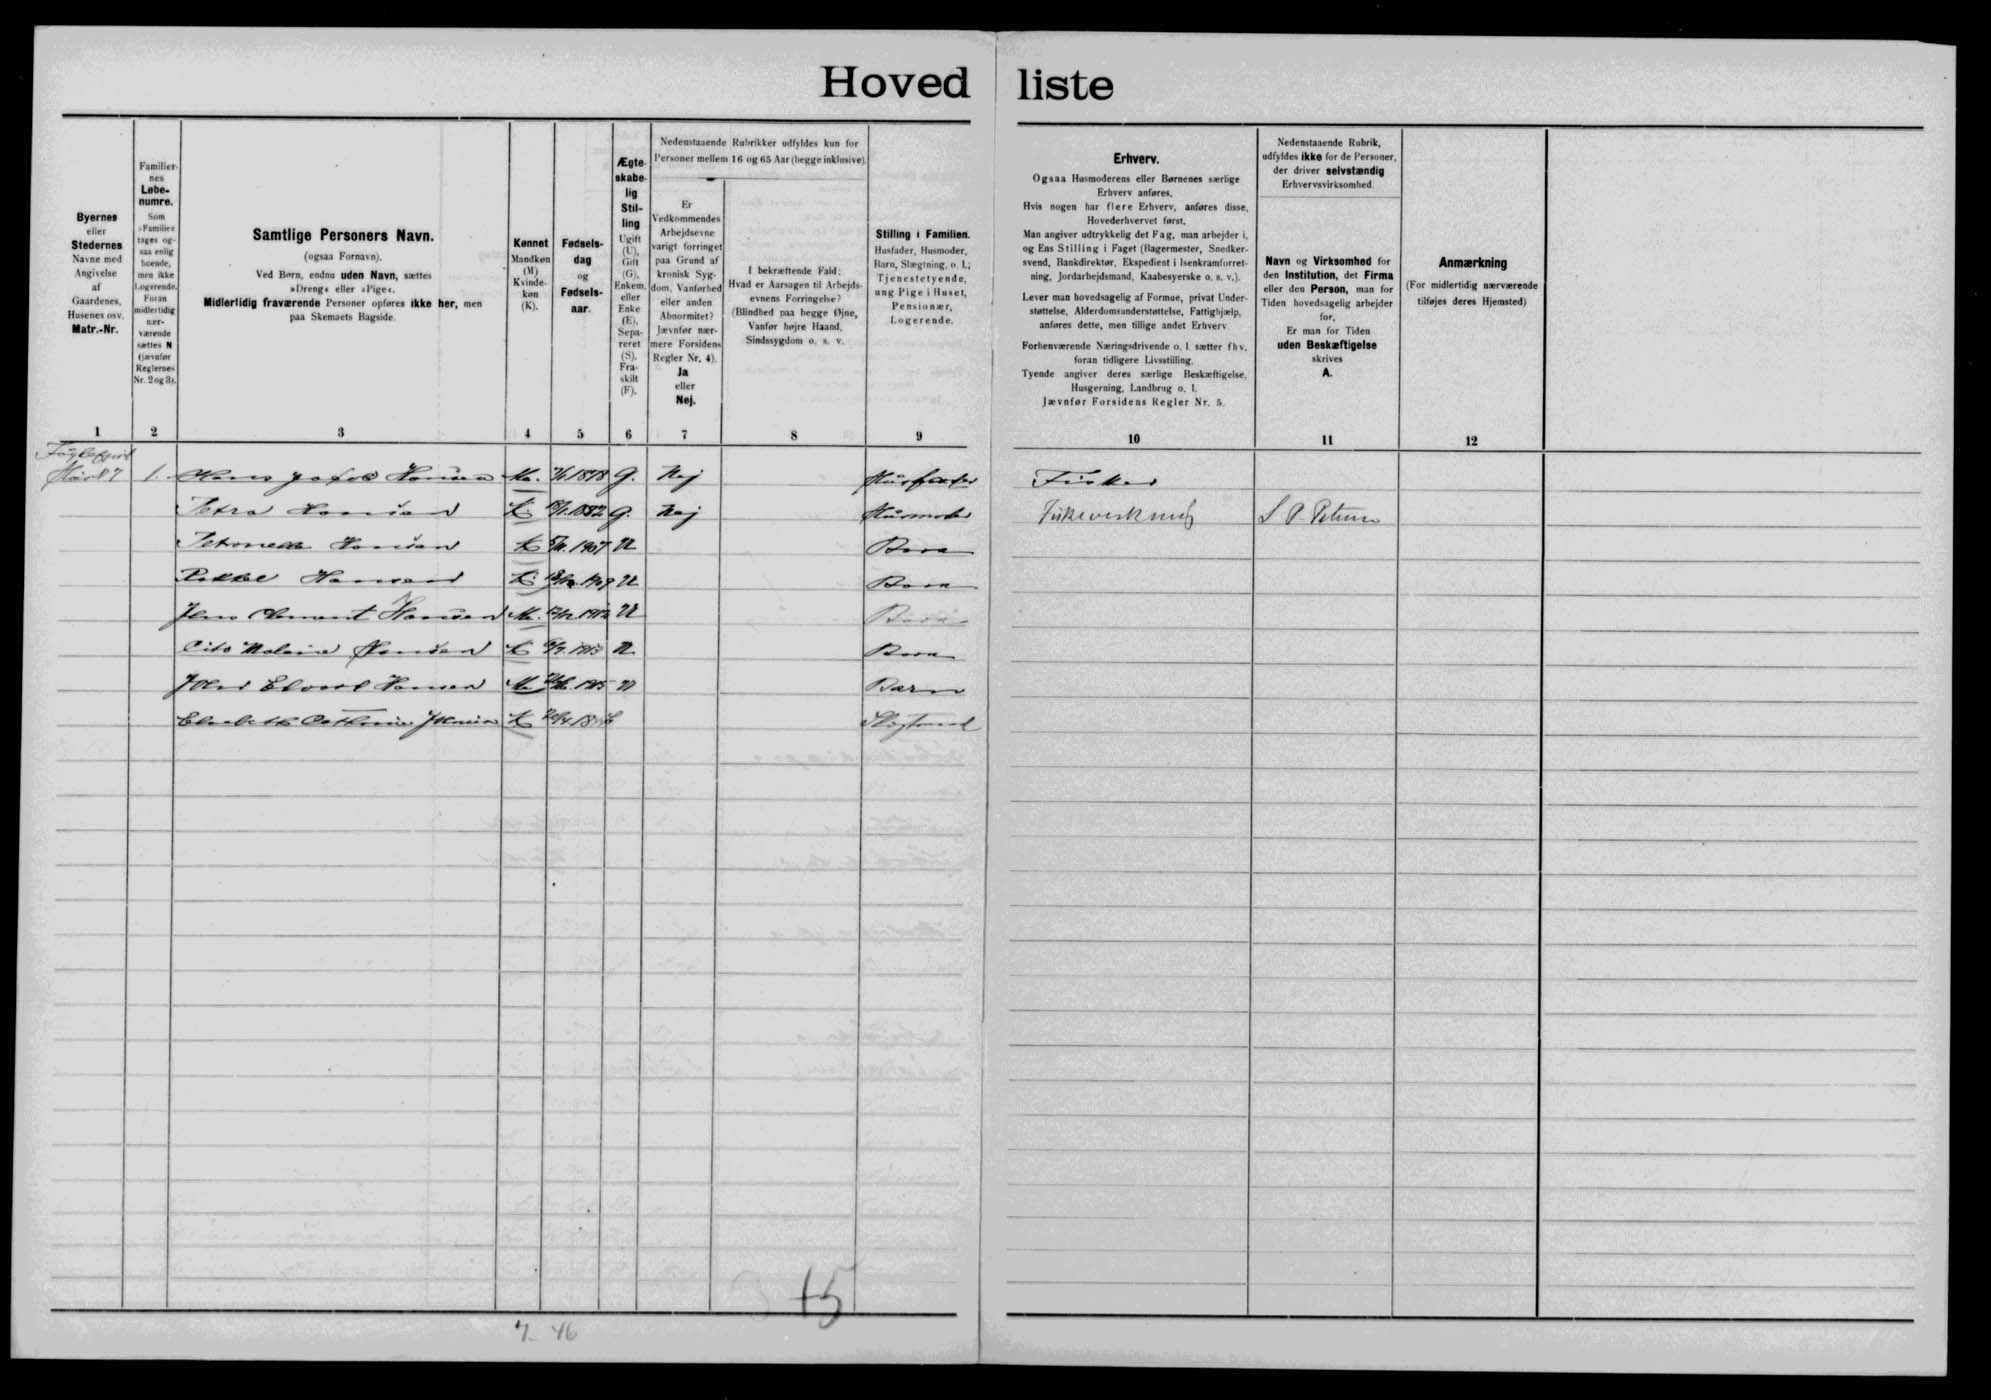 Hoved liste
Byernes
eller
Stedernes
Navne med
Angivelse
af
Gaardenes,
Husenes osv.
Matr.-Nr.
Familier-
nes
Løbe-
numre.
Som
»Familie«
tages og-
saa enlig
boende,
men ikke
Logerende.
Foran
midlertidig
nær-
værende
sættes N
(jævnfør
Reglernes
Nr. 2 og 3).
Samtlige Personers Navn.
(ogsaa Fornavn).
Ved Børn, endnu uden Navn, sættes
»Dreng« eller »Pige«.
Midlertidig fraværende Personer opføres ikke her, men
paa Skemaets Bagside.
Kønnet
Mandkøn
(M)
Kvinde-
køn
(K).
Fødsels-
dag
og
Fødsels-
aar.
Ægte-
skabe-
lig
Stil-
ling
Ugift
(U),
Gift
(G),
Enkem.
eller
Enke
(E),
Sepa-
reret
(S).
Fra-
skilt
(F).
Nedenstaaende Rubrikker udfyldes kun for
Personer mellem 16 og 65 Aar (begge inklusive).
Er
Vedkommendes
Arbejdsevne
varigt forringet
paa Grund af
kronisk Syg-
dom, Vanførhed
eller anden
Abnormitet?
Jævnfør nær-
mere Forsidens
Regler Nr. 4).
Ja
eller
Nej.
I bekræftende Fald:
Hvad er Aarsagen til Arbejds-
evnens Forringelse?
(Blindhed paa begge Øjne,
Vanfør højre Haand,
Sindssygdom o. s. v.
Stilling i Familien.
Husfader, Husmoder,
Barn, Slægtning, o. l.;
Tjenestetyende,
ung Pige i Huset,
Pensionær,
Logerende.
Erhverv.
Ogsaa Husmoderens eller Børnenes særlige
Erhverv anføres.
Hvis nogen har flere Erhverv, anføres disse,
Hovederhvervet først.
Man angiver udtrykkelig det Fag, man arbejder i,
og Ens Stilling i Faget (Bagermester, Snedker-
svend, Bankdirektør, Ekspedient i Isenkramforret-
ning, Jordarbejdsmand, Kaabesyerske o. s. v.).
Lever man hovedsagelig af Formue, privat Under-
støttelse, Alderdomsunderstøttelse, Fattighjælp,
anføres dette, men tillige andet Erhverv
Forhenværende Næringsdrivende o. l. sætter fhv.
foran tidligere Livsstilling.
Tyende angiver deres særlige Beskæftigelse,
Husgerning, Landbrug o. l.
Jævnfør Forsidens Regler Nr. 5.
Nedenstaaende Rubrik,
udfyldes ikke for de Personer,
der driver selvstændig
Erhvervsvirksomhed.
Navn og Virksomhed for
den Institution, det Firma
eller den Person, man for
Tiden hovedsagelig arbejder
for.
Er man for Tiden
uden Beskæftigelse
skrives
A.
Anmærkning
(For midlertidig nærværende
tilføjes deres Hjemsted)
1 2 3 4 5 6 7 8 9 10 11 12
1. Hans Hansen M. 1878 G. Nej Husfader Fisker
Petra Hansen K. 1882 G. Nej Husmoder
Hansen K 1907 U Barn
Hansen K. 1909 U Barn
Jens Hansen M. U Barn
Hansen K U Barn
Hansen M U Barn
K
15